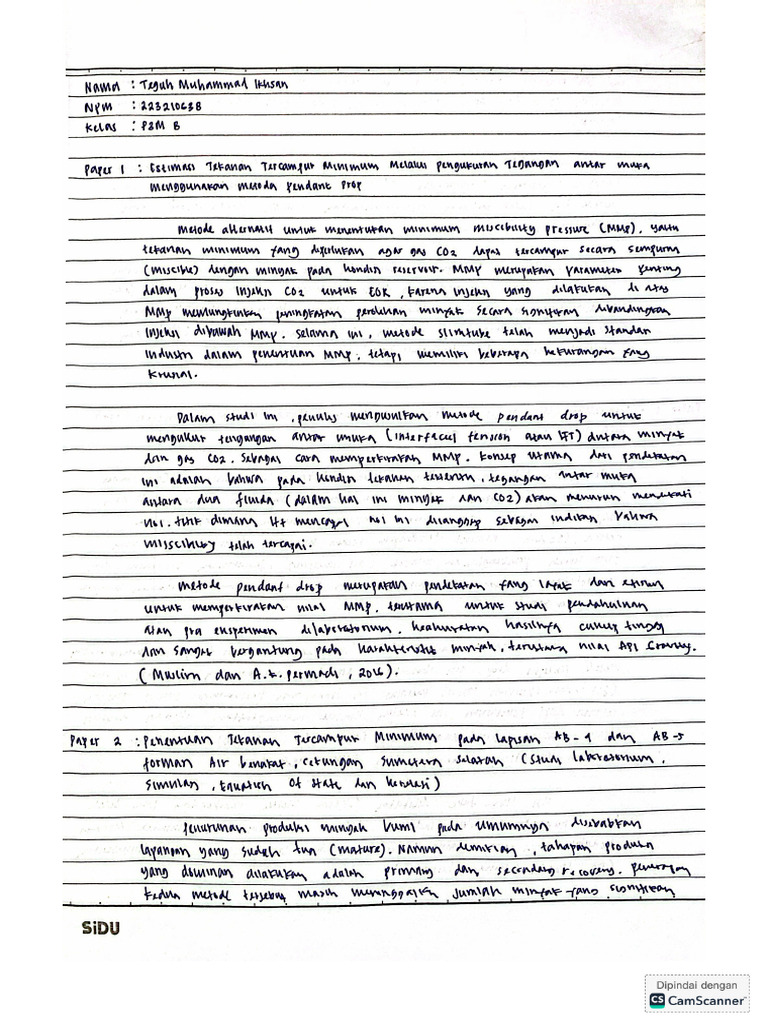 Nama : Teguh Muhammad Ikhsan
Npm : 223210638
Kelas : P2M B
Paper 1 : Estimasi Tekanan Tercampur Minimum Melalui Pengukuran Tegangan antar muka
menggunakan metoda Pendant Drop
Metode alternatif untuk menentukan minimum miscibility pressure (MMP), yaitu
tekanan minimum yang diperlukan agar gas CO2 dapat tercampur secara sempurna
(miscible) dengan minyak pada kondisi reservoir. MMP merupakan parameter penting
dalam proses injeksi CO2 untuk EOR, karena injeksi yang dilakukan di atas
MMP memungkinkan peningkatan perolehan minyak secara signifikan dibandingkan
injeksi dibawah MMP. selama ini, metode slimtube telah menjadi standar
industri dalam penentuan MMP, tetapi memiliki beberapa kekurangan yang
krusial.
Dalam studi ini, penulis mengusulkan metode pendant drop untuk
mengukur tengangan antar muka (interfacial tension atau IFT) antara minyak
dan gas CO2. Sebagai cara memperkirakan MMP. konsep utama dari pendekatan
ini adalah bahwa pada kondisi tekanan tertentu, tegangan antar muka
antara dua fluida (dalam hal ini minyak dan CO2) akan menurun mendekati
nol. titik dimana IFT mencapai nol ini dianggap sebagai indikasi bahwa
miscibility telah tercapai.
Metode pendant drop merupakan pendekatan yang layak dan efisien
untuk memperkirakan nilai MMP, terutama untuk studi pendahuluan
atau pra eksperimen dilaboratorium. keakuratan hasilnya cukup tinggi
dan sangat bergantung pada karakteristik minyak, terutama nilai API Gravity.
(Muslim dan A.K. permadi, 2016).
Paper 2 : Penentuan Tekanan Tercampur Minimum pada lapisan AB-4 dan AB-5
forman Air benakat, cekungan Sumatera Selatan (Studi laboratorium,
simulasi, Equation Of State dan korelasi)
Penurunan produksi minyak bumi pada umumnya disebabkan
lapangan yang sudah tua (mature). Namun demikian, tahapan produksi
yang dominan dilakukan adalah primary dan secondary recovery. penerapan
kedua metode tersebut masih meninggalkan jumlah minyak yang signifikan
SiDU
Dipindai dengan
CS CamScanner